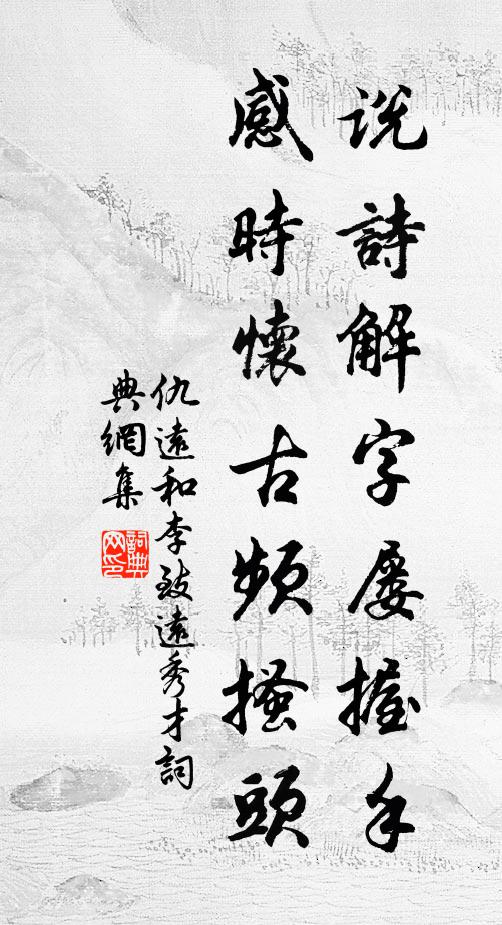 说詩解字屡握手
感時懷古頻搔頭
仇遠和李致遠秀才詞
典網集
詞典网印